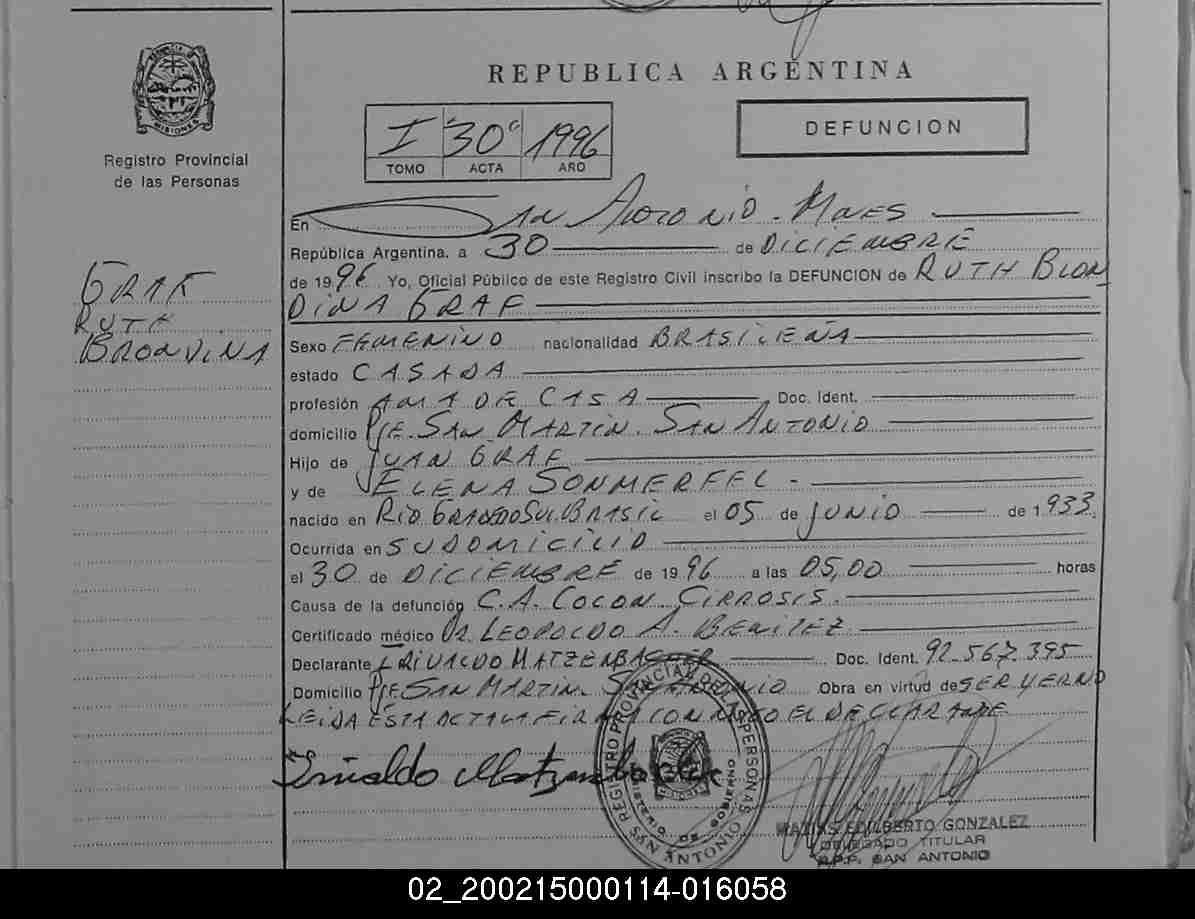 MISIONES
Registro Provincial
de las Personas
GRAF
RUTH
BRONDINA
REPUBLICA ARGENTINA
I "30" 1996
TOMO ACTA AÑO
DEFUNCION
En San Antonio - Mnes
República Argentina, a 30 de DICIEMBRE
de 1996 Yo, Oficial Público de este Registro Civil inscribo la DEFUNCION de RUTH BLON
DINA GRAF
Sexo FEMENINO nacionalidad BRASILEÑA
estado CASADA
profesión AMA DE CASA Doc. Ident.
domicilio PJE. SAN MARTIN. SAN ANTONIO
Hijo de JUAN GRAF
y de ELENA SONMERFEL -
nacido en RIO GRANDE DO SUL BRASIL el 05 de JUNIO de 1.933.
Ocurrida en SU DOMICILIO
el 30 de DICIEMBRE de 1996 a las 05,00 horas
Causa de la defunción C.A. COLON CIRROSIS.
Certificado médico Dr. LEOPOLDO A. BENITEZ
Declarante IRIVALDO MATZENBACHER Doc. Ident. 92.567.395
Domicilio PJE SAN MARTIN. SAN ANTONIO Obra en virtud de SER YERNO
LEIDA ESTA ACTA LA FIRMA CONMIGO EL DECLARANTE
REGISTRO PROVINCIAL DE LAS PERSONAS
MINISTERIO DE GOBIERNO
MISIONES
SAN ANTONIO
MATIAS EDILBERTO GONZALEZ
DELEGADO TITULAR
R.P.P. SAN ANTONIO
02_200215000114-016058